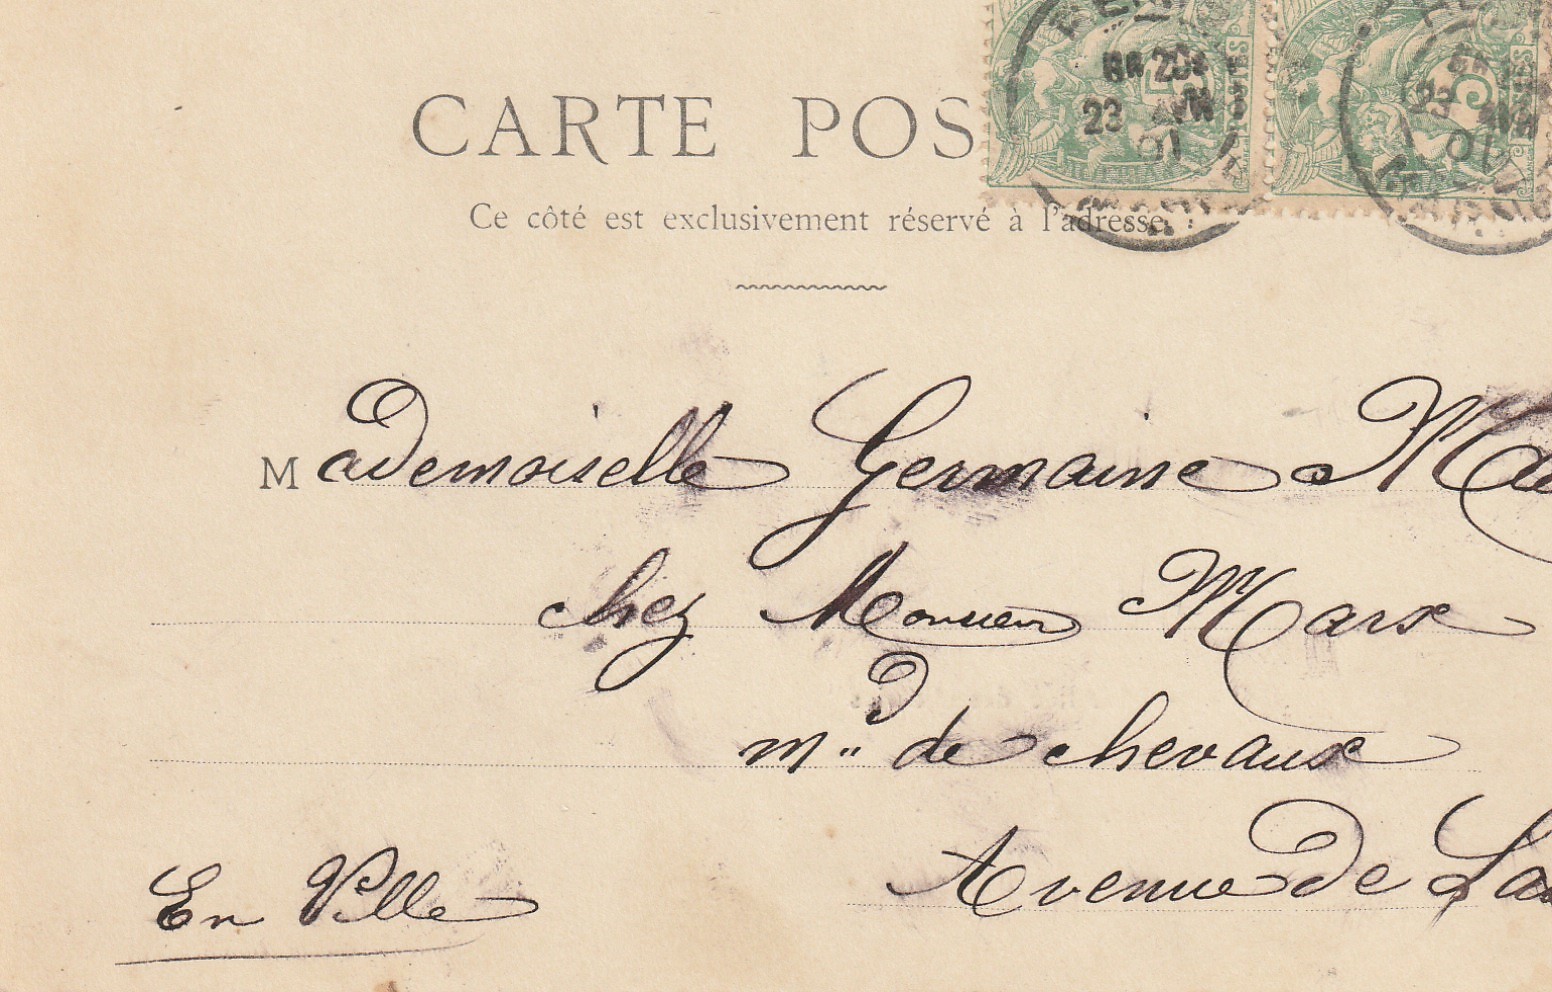 CARTE POS
Ce côté est exclusivement réservé à l'adresse.
8M 20
23 AVR
01
23 AVR
01
Mademoiselle Germaine Ma
chez Monsieur Marx
md de chevaux
Avenue de La
En Ville